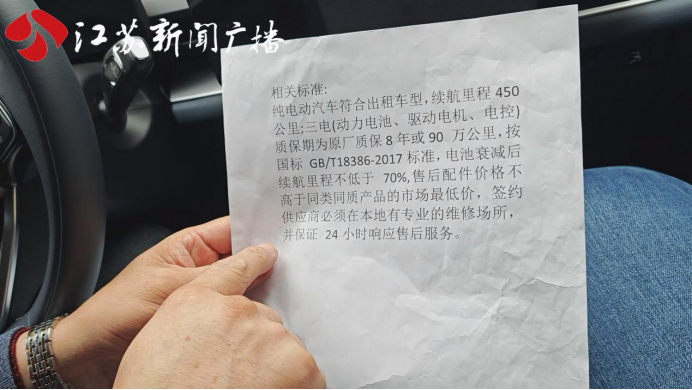 江苏新闻广播
相关标准:
纯电动汽车符合出租车型，续航里程 450
公里;三电(动力电池、驱动电机、电控)
质保期为原厂质保 8 年或 90 万公里，按
国标 GB/T18386-2017 标准，电池衰减后
续航里程不低于 70%,售后配件价格不
高于同类同质产品的市场最低价，签约
供应商必须在本地有专业的维修场所，
并保证 24 小时响应售后服务。